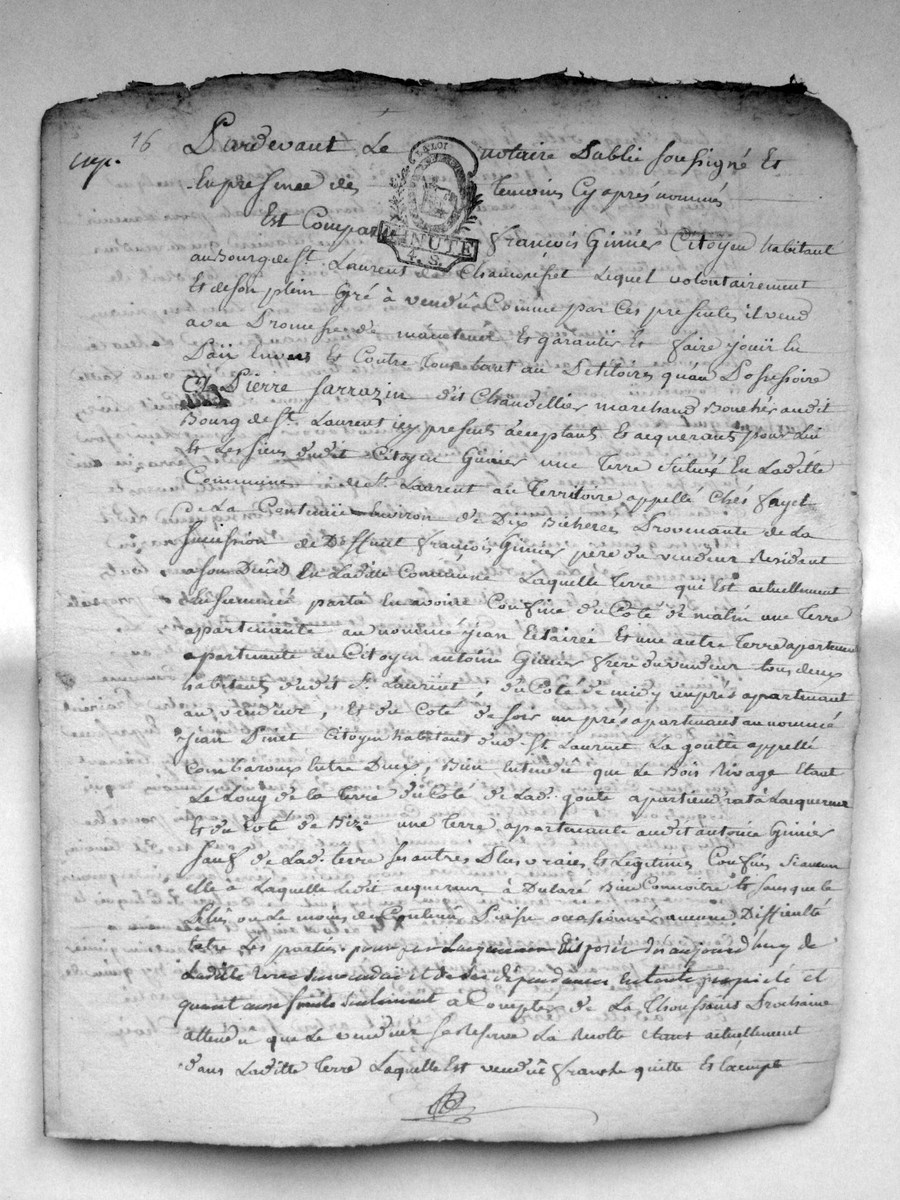 16
exp.
Pardevant Le notaire Public soussigné Et
En presence des temoins Cy après nommés
LA LOI
MINUTE
4. S.
Est Comparu françois Ginier Citoyen habitant
au Bourg de St. Laurent de Chamousset Lequel volontairement
Et de son plein Gré à vendû Comme par Ces presentes il vend
avec Promesse de maintenir Et garantir Et faire jouir En
Paix Envers Et Contre tous tant au Petitoire qu'au Possessoire
Pierre Sarrazin dit Chaudillier marchand Boucher audit
Bourg de St. Laurent icy present acceptant Et acquerant pour Lui
Et Les siens dudit Citoyen Ginier une Terre Située En Laditte
Commune de St. Laurent au Territoire appellé Chés fayet
De La Contenue Environ de Dix Bicherées Provenante de La
Succession de Deffunt françois Ginier pere du vendeur Residant
a son Décès En Laditte Commune Laquelle Terre qui Est actuellement
Ensemencée partie En avoine Confine du Coté de matin une Terre
apartenante au nommé jean Et une autre Terre apartenante
apartenante au Citoyen antoine Ginier frere du vendeur tous deux
habitants dudit St. Laurent, du Coté de midy un prés apartenant
au vendeur, Et du Coté de soir un prés apartenant au nommé
jean Pinet Citoyen habitant dud. St Laurent La goutte appellé
Combaroux Entre Deux, Bien Entendû que Le Bois Rivage Etant
Le Long de la Terre du Coté de Lad. goute apartiendrat à Lacquereur
Et du Coté de Bize une Terre apartenante audit antoine Ginier
Sauf de Lad. Terre ses autres Plus vraies Et Legitimes Confins Si aucun
elle a Laquelle Ledit acquereur à Declaré Bien Connoitre Et sans que le
Plus ou Le moins de Contenue Puisse occasionner aucune Difficulté
Entre Les parties pour par Lacquereur Disposer Dès aujourd'huy de
Laditte Terre vendue et de ses dépendances En toute propriété et
quant aux fruits seulement à Compter de La Thoussaint Prochaine
attendu que Le vendeur se Reserve La Recolte Etant actuellement
dans Laditte Terre Laquelle Est vendûe franche quitte Et Exempte